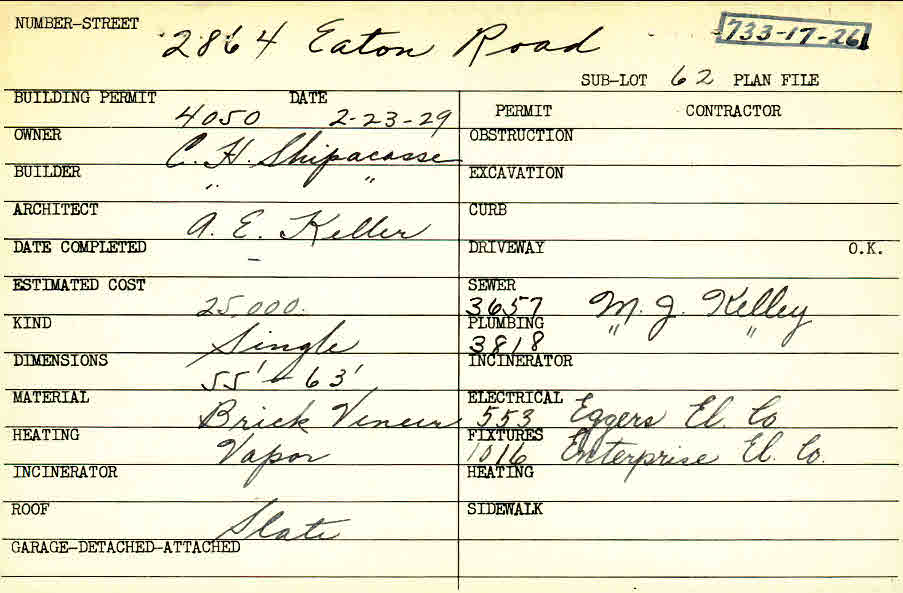 NUMBER-STREET 2864 Eaton Road 733-17-26
SUB-LOT 62 PLAN FILE
BUILDING PERMIT 4050 DATE 2-23-29
PERMIT CONTRACTOR
OWNER C. H. Shipacasse
OBSTRUCTION
BUILDER " "
EXCAVATION
ARCHITECT A. E. Keller
CURB
DATE COMPLETED -
DRIVEWAY O.K.
ESTIMATED COST 25,000.
SEWER 3657 M. J. Kelley
KIND Single
PLUMBING 3818 " "
DIMENSIONS 55' 63'
INCINERATOR
MATERIAL Brick Veneer
ELECTRICAL 553 Eggers El. Co
HEATING Vapor
FIXTURES 1016 Enterprise El. Co.
INCINERATOR
HEATING
ROOF Slate
SIDEWALK
GARAGE-DETACHED-ATTACHED